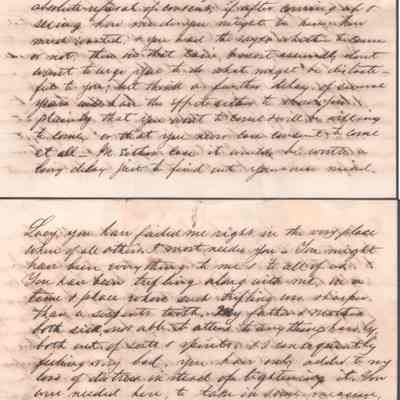 absolute refusal of consent, if after coming up &
seeing how much you might be here how
much wanted, & you had the say so whether to come
or not. then is not that fair, I most assuredly dont
want to urge you to do what might be distaste-
ful to you, but think a further delay of several
years will have the opportunities to show fair
plainly that you want to come & will be willing
to come, or that you never can consent to come
at all - In either case it would be worth a
long delay just to find out your own mind.
Lucy, you have failed me right in the very place
where of all others I most needed you. You might
have been everything to me & to all of us.
You have been trifling along with me, in a
time & place where such trifling was sharper
than a serpents tooth. My father & mother
both sick, not able to attend to any thing hardly
both out of sorts & spirits, & I consequently
feeling very bad, you have only added to my
loss of distress instead of lightening it. You
are needed here, to take in some measure,